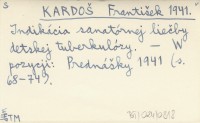 S
KARDOŠ František 1941.
Indikácia sanatórnej liečby
detskej tuberkulózy. — W
pozycji: Prednášky 1941 (s.
68-74).
TM